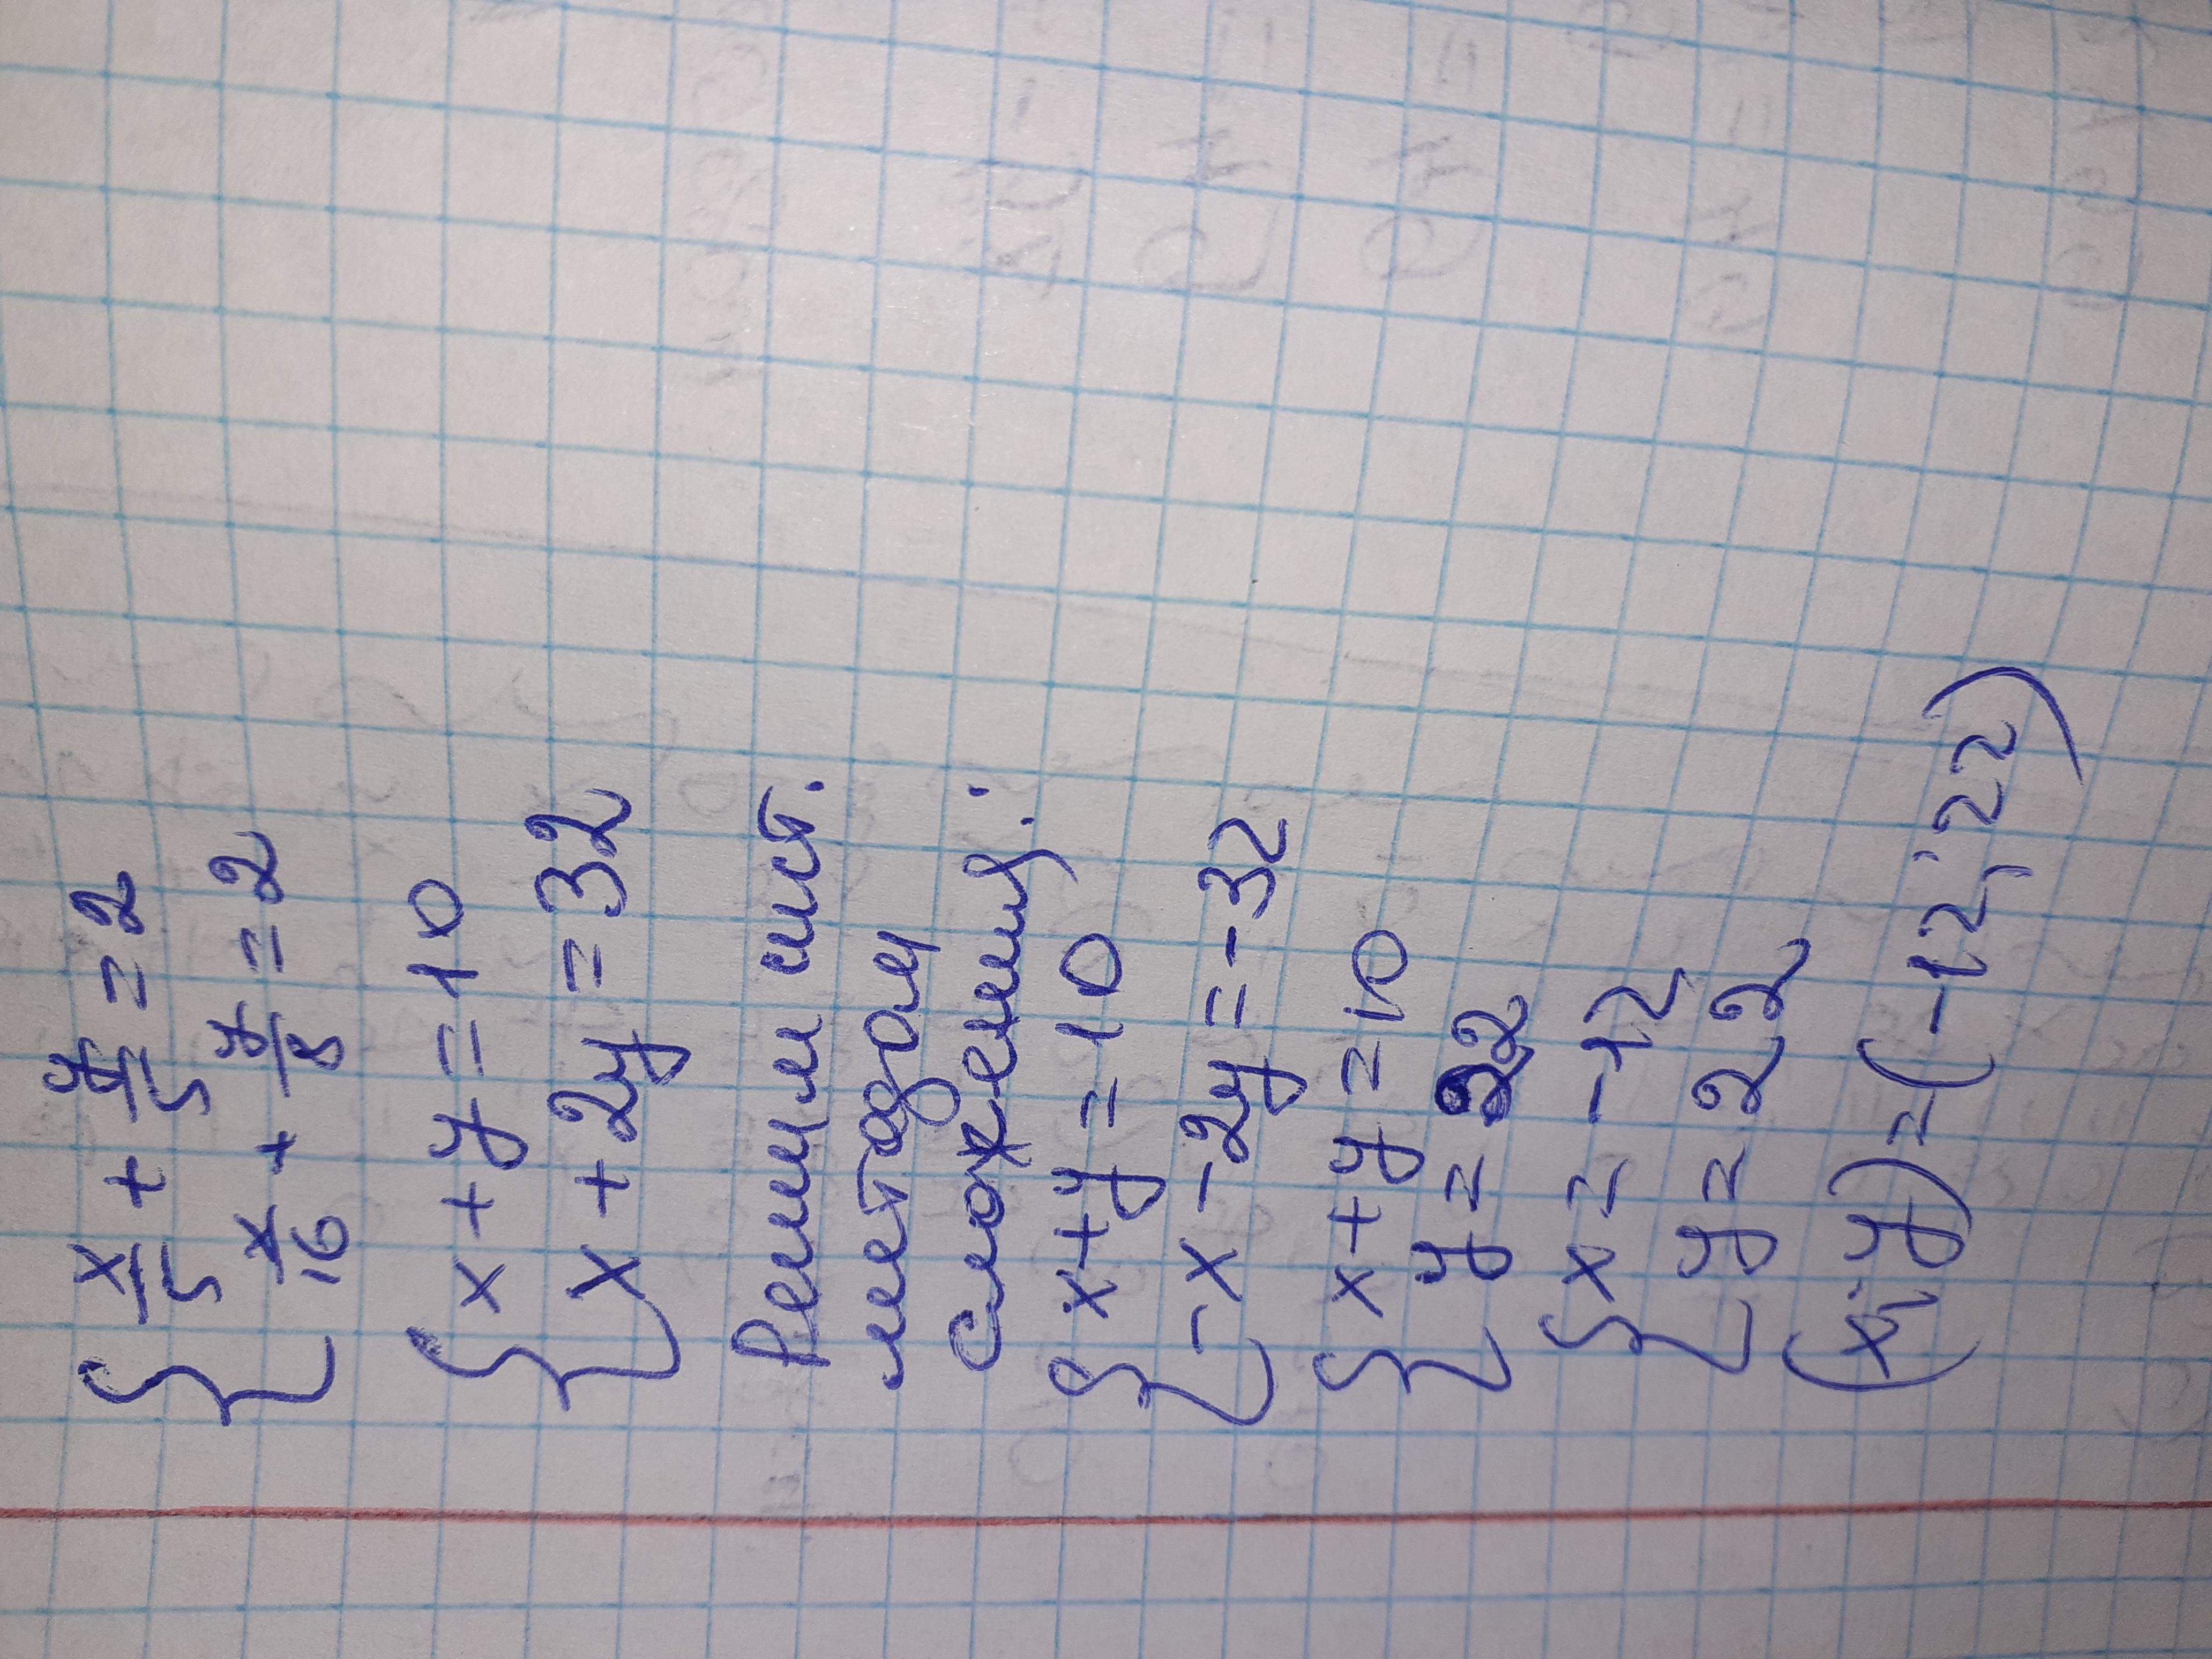 { x/5 + y/5 = 2
x/16 + y/8 = 2
{ x + y = 10
x + 2y = 32
Решим сист.
методом
сложения:
{ x + y = 10
-x - 2y = -32
{ x + y = 10
y = 22
{ x = -12
y = 22
(x; y) = (-12; 22)